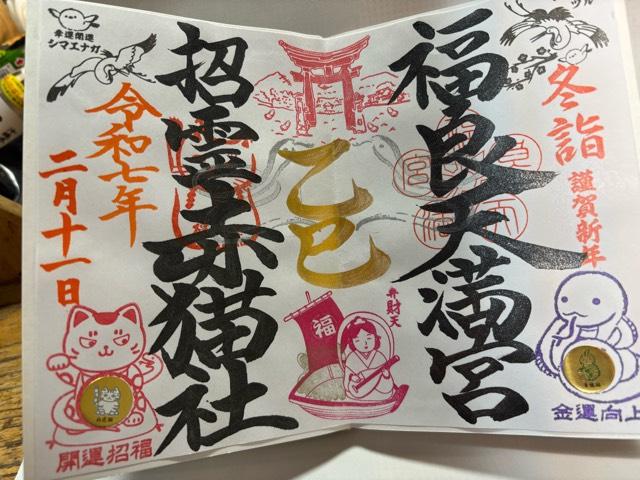 冬詣
謹賀新年
福良天満宮
金運向上
乙巳
弁財天
福
招霊赤猫社
幸運開運
シマエナガ
令和七年
二月十一日
開運招福